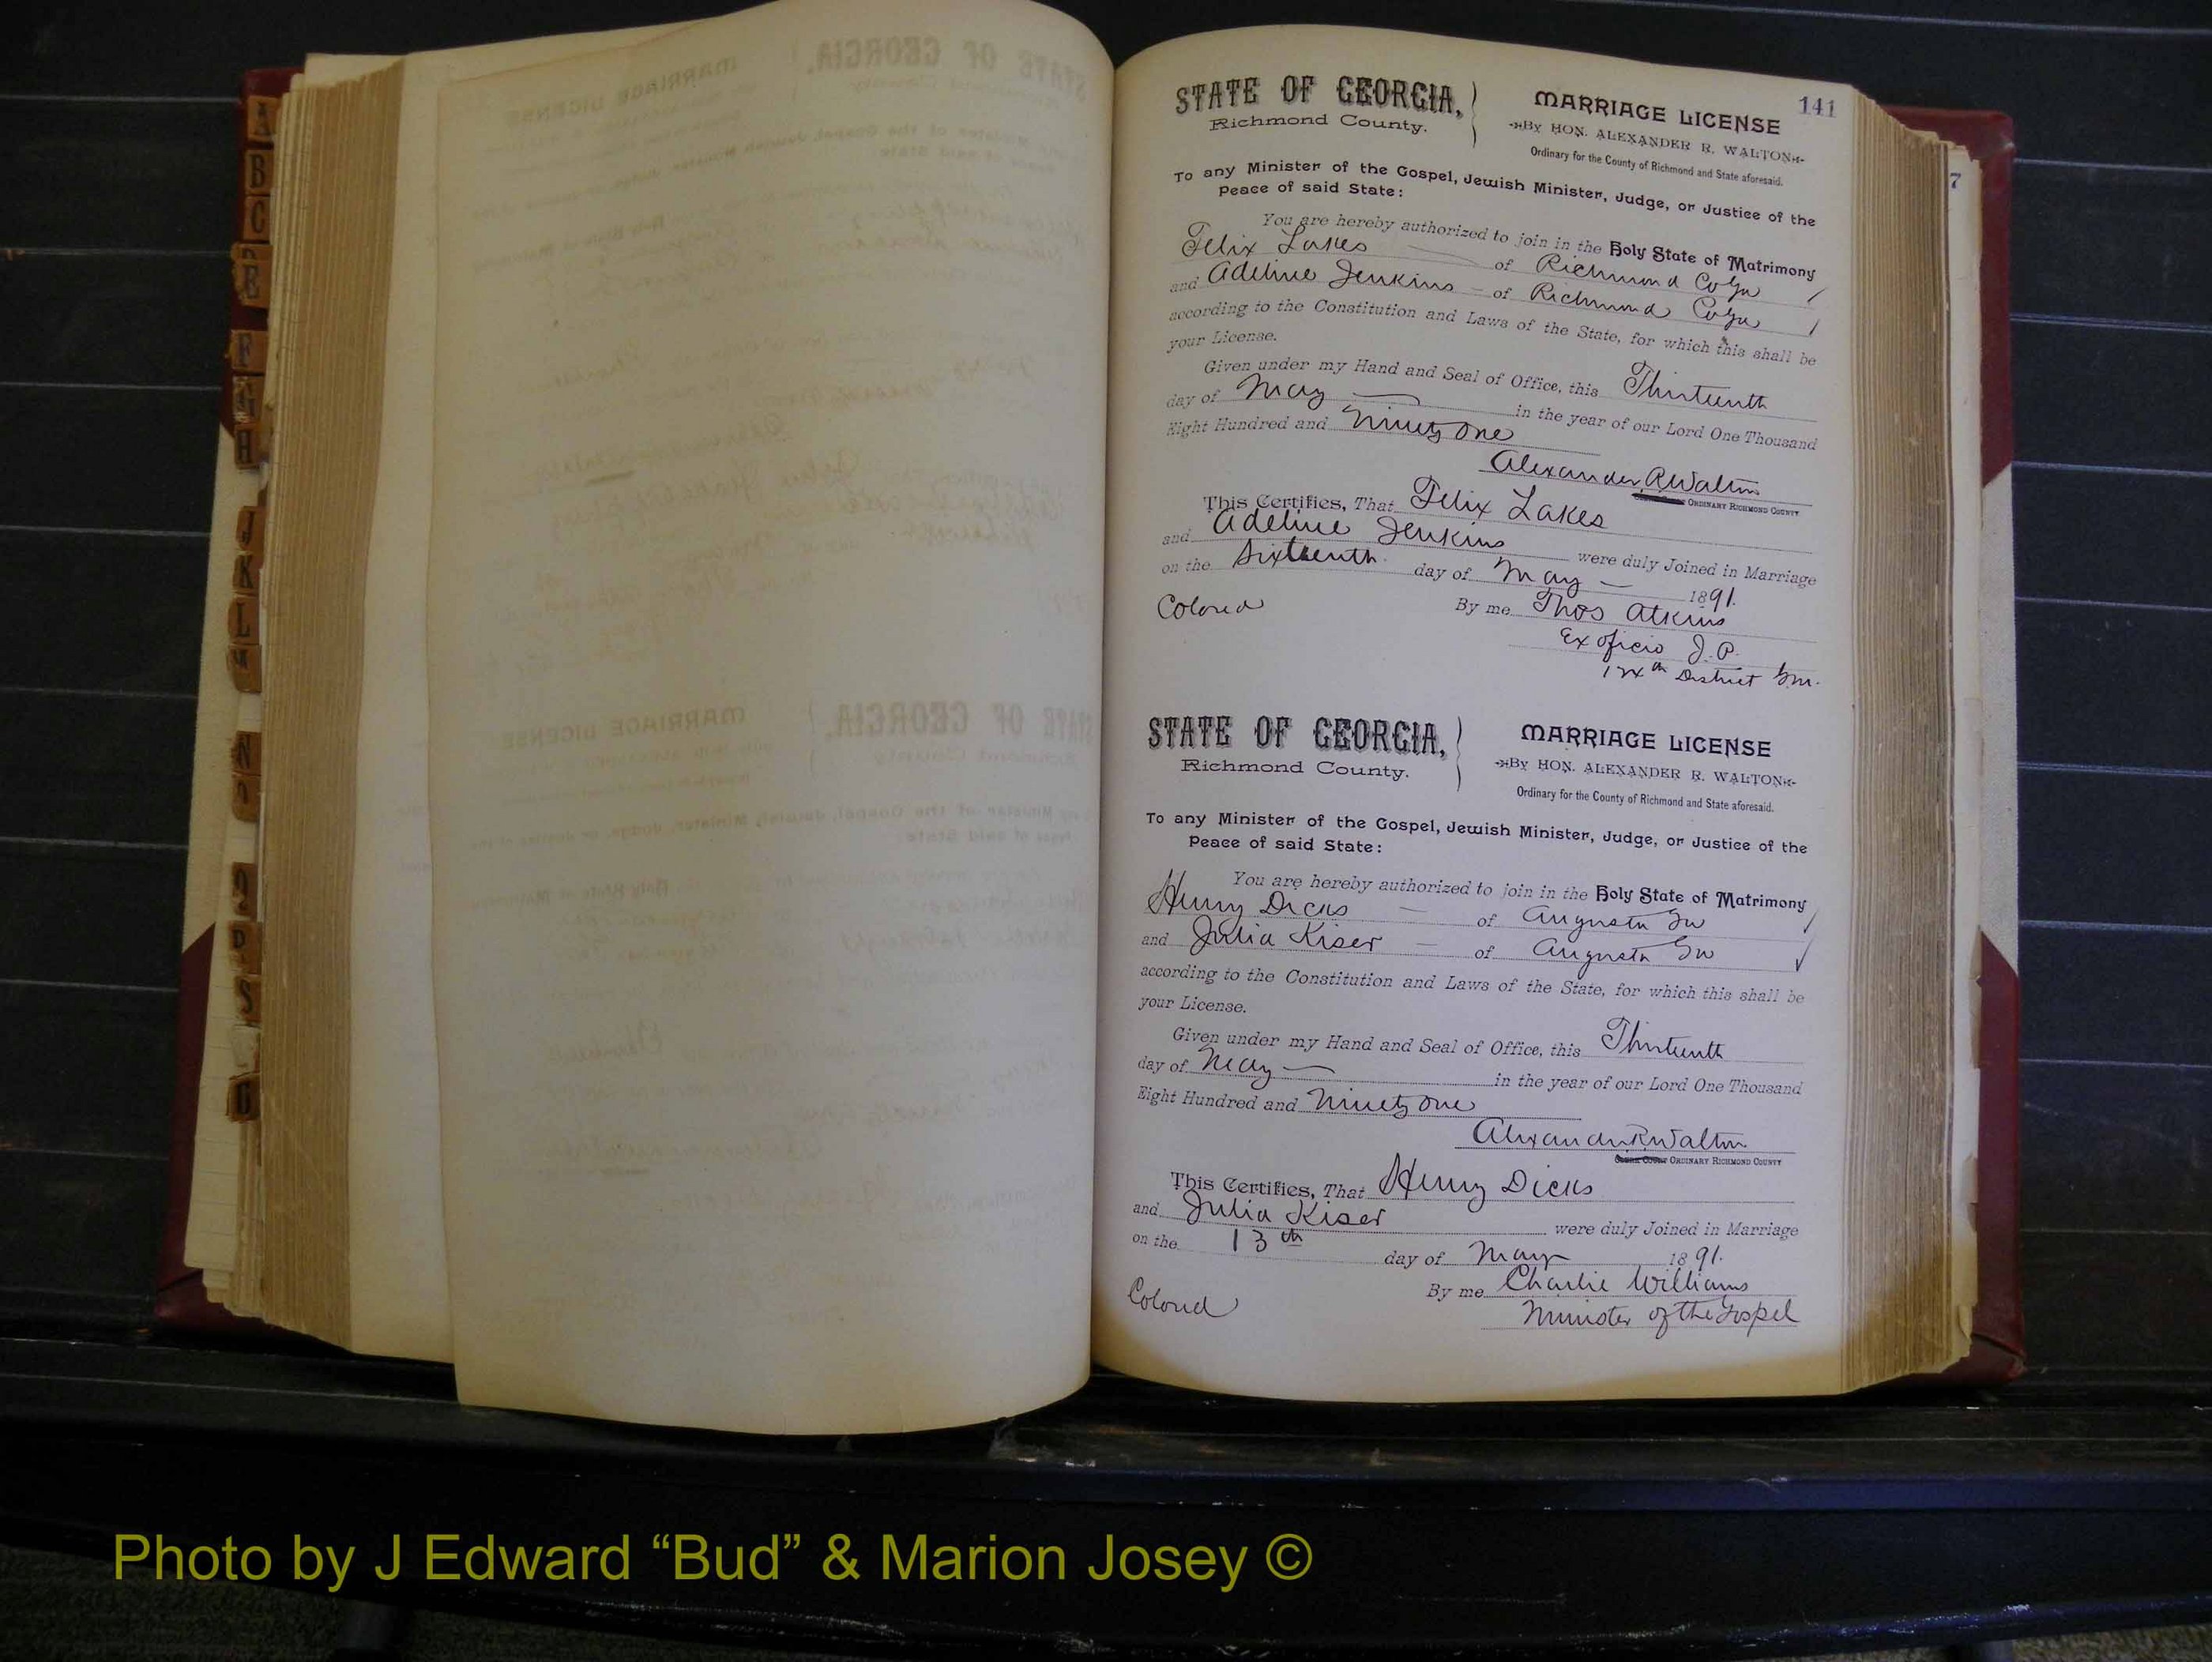 141
7
STATE OF GEORGIA,
Richmond County.
MARRIAGE LICENSE
By HON. ALEXANDER R. WALTON
Ordinary for the County of Richmond and State aforesaid.
To any Minister of the Gospel, Jewish Minister, Judge, or Justice of the
Peace of said State:
You are hereby authorized to join in the Holy State of Matrimony
Felix Lakes of Richmond Co Ga
and Adeline Jenkins of Richmond Co Ga
according to the Constitution and Laws of the State, for which this shall be
your License.
Given under my Hand and Seal of Office, this Thirteenth
day of May in the year of our Lord One Thousand
Eight Hundred and Ninety One
Alexander R Walton
ORDINARY RICHMOND COUNTY
This Certifies, That Felix Lakes
and Adeline Jenkins were duly Joined in Marriage
on the Sixteenth day of May 1891.
Colored By me Thos Atkins
Ex oficio J.P.
District G.M.
STATE OF GEORGIA,
Richmond County.
MARRIAGE LICENSE
By HON. ALEXANDER R. WALTON
Ordinary for the County of Richmond and State aforesaid.
To any Minister of the Gospel, Jewish Minister, Judge, or Justice of the
Peace of said State:
You are hereby authorized to join in the Holy State of Matrimony
Henry Dicks of Augusta Ga
and Julia Kiser of Augusta Ga
according to the Constitution and Laws of the State, for which this shall be
your License.
Given under my Hand and Seal of Office, this Thirteenth
day of May in the year of our Lord One Thousand
Eight Hundred and Ninety One
Alexander R Walton
ORDINARY RICHMOND COUNTY
This Certifies, That Henry Dicks
and Julia Kiser were duly Joined in Marriage
on the 13th day of May 1891.
Colored By me Charlie Williams
Minister of the Gospel
A
B
C
E
F
H
J
K
L
M
N
P
S
Photo by J Edward “Bud” & Marion Josey ©